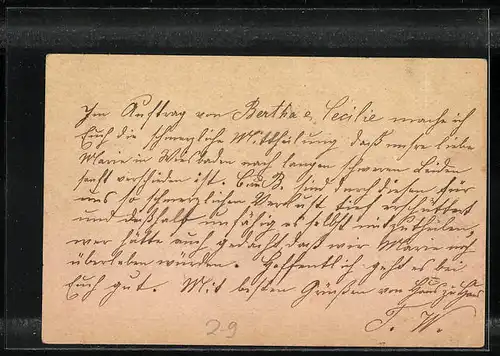 Im Auftrag von Bertha & Cecilie mache ich
Euch die schmerzliche Mittheilung daß unsre liebe
Marie in Wiesbaden nach langen schweren Leiden
sanft verschieden ist. C. u. B. sind durch diesen für
uns so schmerzlichen Verlust tief erschüttert
und deßhalb unfähig es selbst mitzutheilen,
wer hätte auch gedacht, daß wir Marie noch
überleben würden. Hoffentlich geht es bei
Euch gut. Mit besten Grüßen von Haus zu Haus
F. W.
29